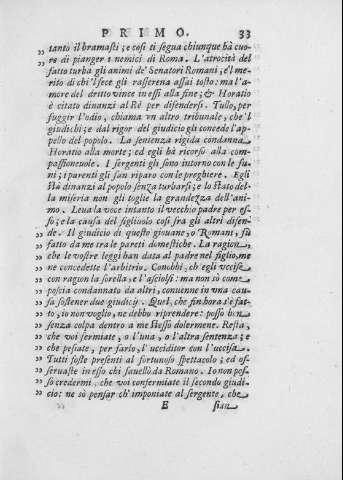 PRIMO. 33
„ tanto il bramasti; e così ti segua chiunque hà cuo-
„ re di pianger i nemici di Roma. L'atrocità del
fatto turba gli animi de' Senatori Romani; e'l me-
rito di chi'l fece gli rasserena assai tosto: ma l'a-
more del dritto vince in essi alla fine; & Horatio
è citato dinanzi al Rè per difendersi. Tullo, per
fuggir l'odio, chiama vn altro tribunale, che'l
giudichi; e dal rigor del giudicio gli concede l'ap-
pello del popolo. La sentenza rigida condanna
Horatio alla morte; ed egli hà ricorso alla com-
passioneuole. I sergenti gli sono intorno con le fu-
ni; i parenti gli fan riparo con le preghiere. Egli
stà dinanzi al popolo senza turbarsi; e lo stato del-
la miseria non gli toglie la grandezza dell'ani-
mo. Leua la voce intanto il vecchio padre per es-
so; e la causa del figliuolo così fra gli altri difen-
„ de. Il giudicio di questo giouane, o Romani, fù
„ fatto da me tra le pareti domestiche. La ragion,
„ che le vostre leggi han data al padre nel figlio, me
„ ne concedette l'arbitrio. Conobbi, ch'egli vccise
„ con ragion la sorella, e l'asciolsi: ma non sò come
„ poscia condannato da altri, conuenne in vna cau-
„ sa sostener due giudicij. Quel, che fin'hora s'è fat-
„ to, io non voglio, ne debbo riprendere: posso ben
„ senza colpa dentro a me stesso dolermene. Resta,
„ che voi fermiate, o l'una, o l'altra sentenza; e
„ che pesiate, per farlo, l'ucciditor con l'uccisa.
„ Tutti foste presenti al fortunoso spettacolo; ed of-
„ seruaste in esso chi fauellò da Romano. Io non pos-
„ so credermi, che voi confermiate il secondo giudi-
„ cio: ne sò pensar ch'imponiate al sergente, che
E
sian